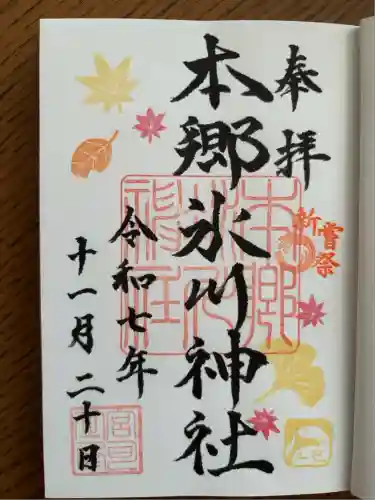 奉拝
本郷氷川神社
新嘗祭
本郷氷川神社
令和七年
十一月二十日